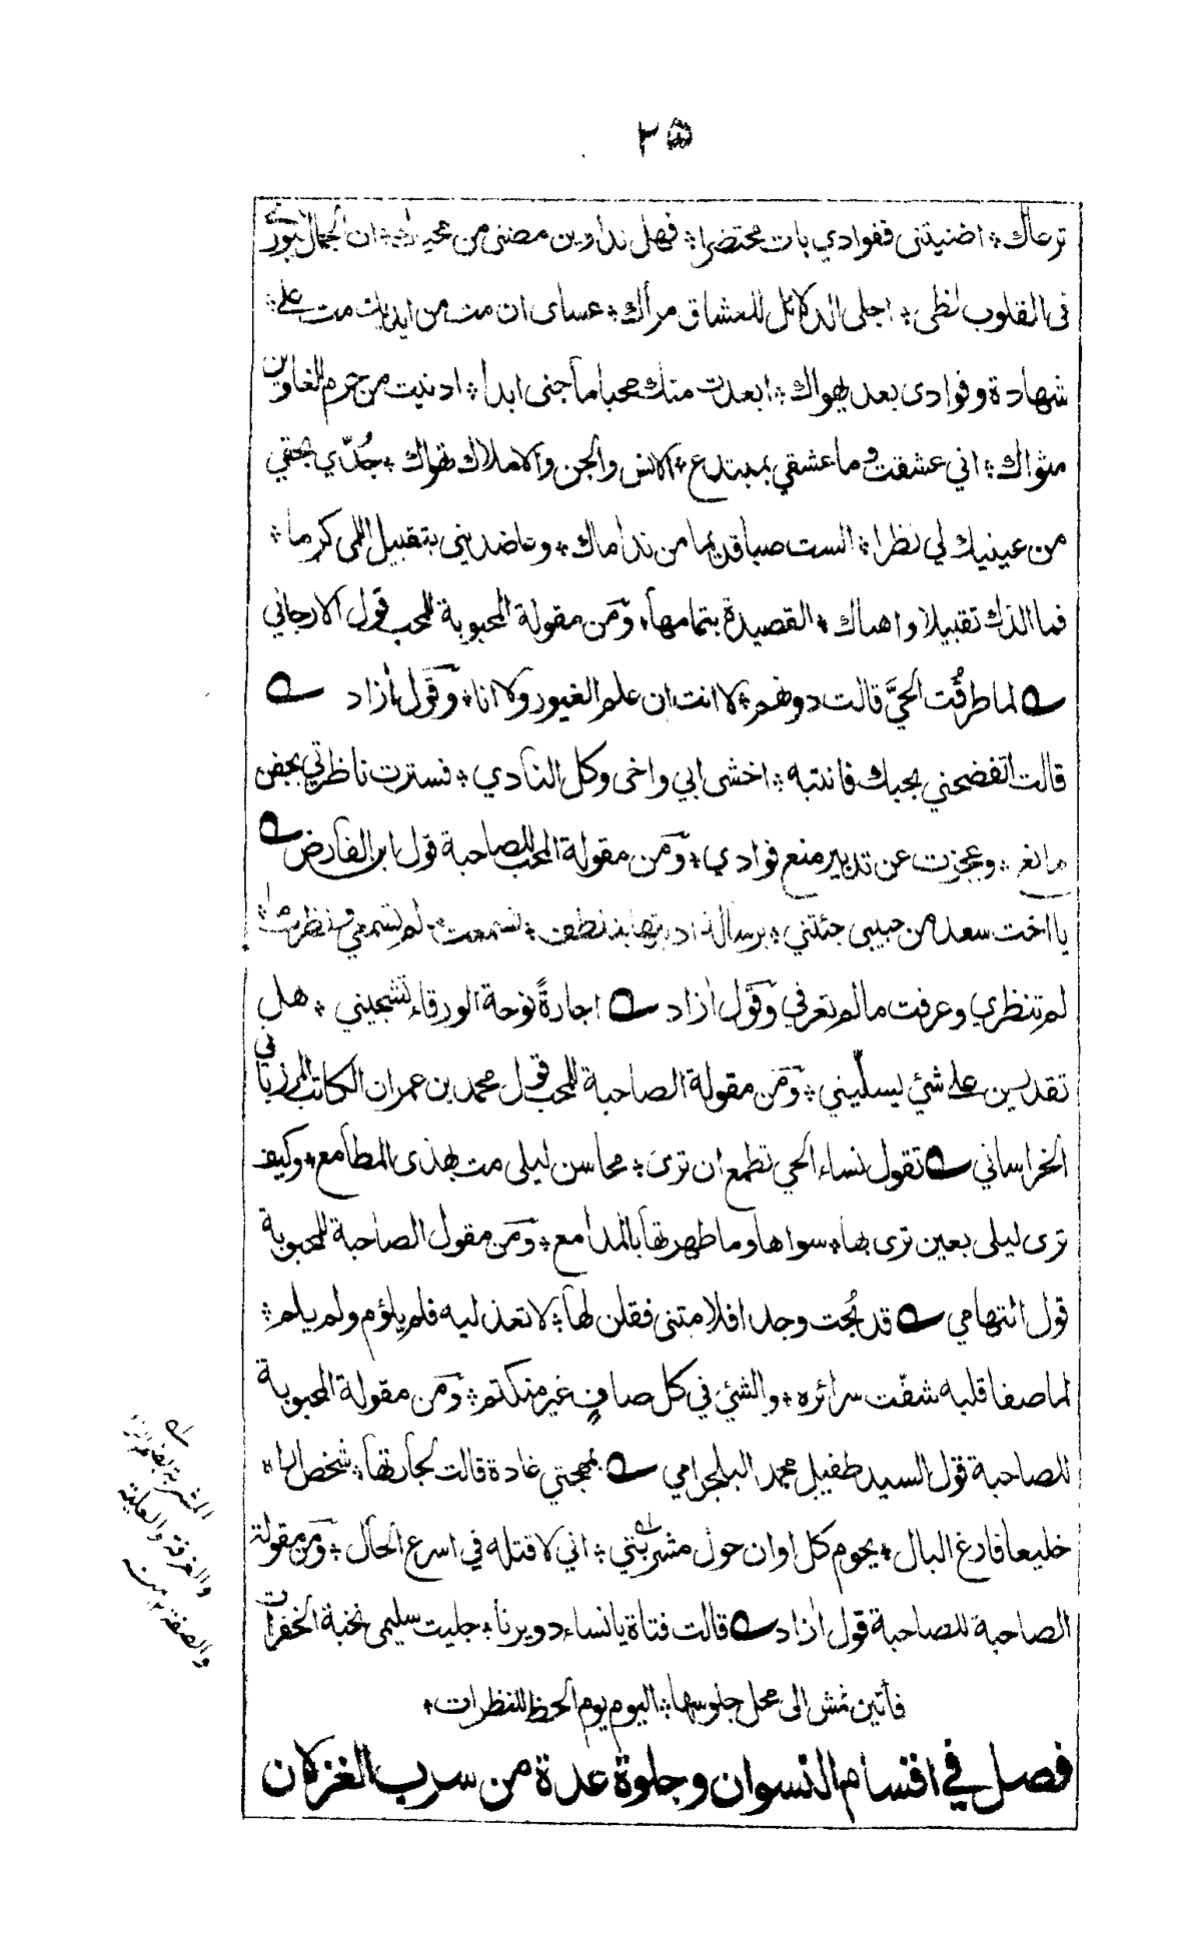 ٢٥
ترعاك ؞ اضنيتني ففوادي بات محتضرا ؞ فهل تداوين مضنى من محياك ؞ ان الجمال ليورى
فى القلوب لظى ؞ اجلى الدلائل للعشاق مراك ؞ عساى ان مت من ايديك مت على
شهادة وفوادى بعد يهواك ؞ ابعدت منك محبا ما جنى ابدا ؞ ادنيت من حرم للغاوين
مثواك ؞ اني عشقت وما عشقي بمبتدع ؞ الانس والجن والاملاك تهواك ؞ جُدّي بحقي
من عينيك لي نظرا ؞ الست صبا قديما من نداماك ؞ وعاضديني بتقبيل اللمى كرما ؞
فما الذك تقبيلا واهناك ؞ القصيدة بتمامها ؞ ومن مقولة المحبوبة للمحب قول الارجاني
لما طرقُت الحيَّ قالت دونهم ؞ لا انت ان علم الغيور ولا انا ؞ وقول اٰزاد
قالت اتفضحني بحبك فانتبه ؞ اخشى ابي واخى وكل النادي ؞ فسترت ناظرتي بجفن
مانع ؞ وعجزت عن تدبير منع فوادي ؞ ومن مقولة المحب للصاحبة قول ابن الفارض
يا اخت سعد من حبيبى جئتني ؞ برسالة اديتها بتلطف ؞ فسمعت ما لم تسمعي ونظرت ما
لم تنظري وعرفت ما لم تعرفي وقول اٰزاد اجارةً نوحة الورقاء تشجيني ؞ هل
تقدرين على شئ يسلّيني ؞ ومن مقولة الصاحبة للمحب قول محمد بن عمران الكاتب المرزباني
الخراساني تقول نساء الحي تطمع ان ترى ؞ محاسن ليلى مت بهذى المطامع ؞ وكيف
ترى ليلى بعين ترى بها ؞ سواها وما طهرتها بالمدامع ؞ ومن مقول الصاحبة للمحبوبة
قول التهامي قد بُحت وجدا فلامتنى فقلن لها ؞ لا تعذليه فلم يلؤم ولم يلم ؞
لما صفا قلبه شفّت سرائره ؞ والشئ في كل صافٍ غير منكتم ؞ ومن مقولة المحبوبة
للصاحبة قول السيد طفيل محمد البلجرامي بمهجتي غادة قالت لجارتها ؞ شخص اراه
خليعا فارغ البال ؞ يحوم كل اوان حول مشربتي ؞ اني لاقتله في اسرع الحال ؞ ومن مقولة
الصاحبة للصاحبة قول اٰزاد قالت فتاة يا نساء دويرنا ؞ جليت سليمى نخبة الخفرات
فأتين نمش الى محل جلوسها ؞ اليوم يوم الحظ للنظرات ؞
فصل في اقسام النسوان وجلوة عدة من سرب الغزلان
المشربة
والغرفة والعلية
والصفة